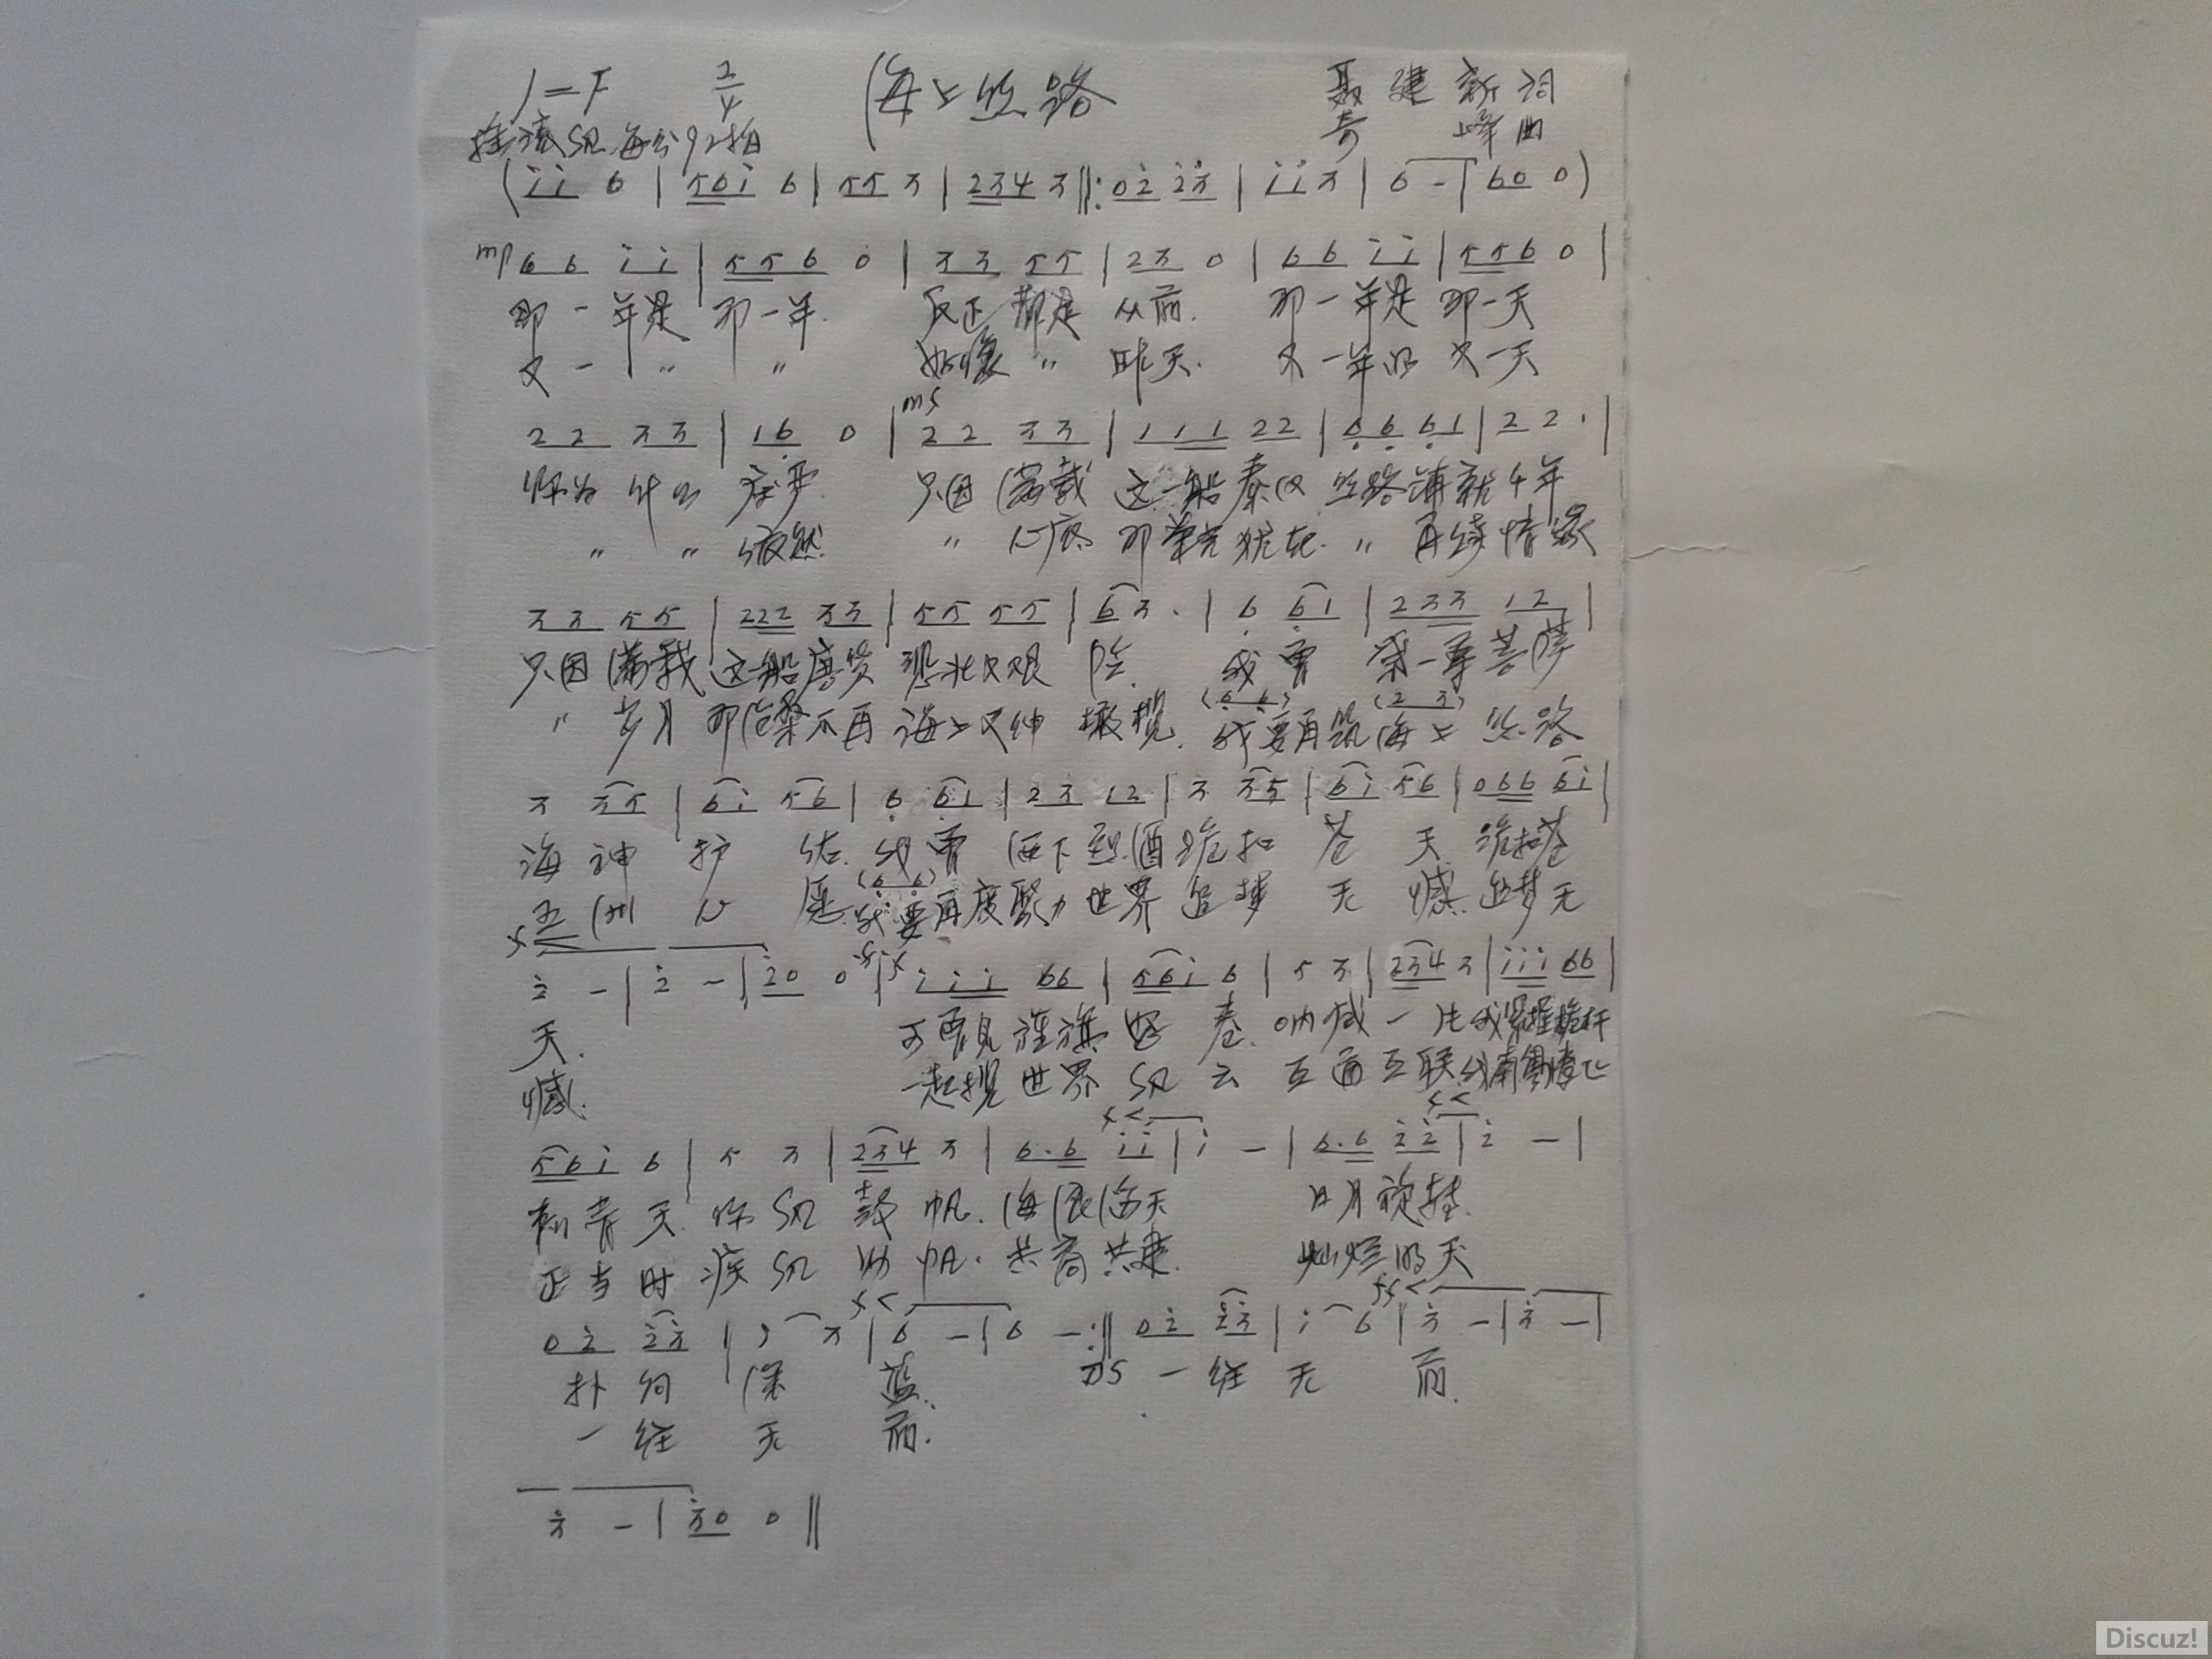 1=F 2/4 海上丝路 聂建新词
摇滚风 每分92拍 奇峰曲
(i̇i̇ 6 | 56i̇ 6 | 55 3 | 234 3 ‖: 02̇ 2̇3̇ | i̇i̇3̇ | 6 - | 60 0)
mp 66 i̇i̇ | 556 0 | 33 55 | 23 0 | 66 i̇i̇ | 556 0 |
那一年是 那一年. 反正都是 从前. 那一年是 那一天
又一 " " 好像 " 昨天. 又一年的 又一天
22 33 | 16̣ 0 | mf 22 33 | 111 22 | 6̣6̣ 6̣1 | 22 · |
你为什么 庄严. 只因满载 这一船秦汉 丝路铺就千年
" " 依然. " 心底 那荣光犹在. " 再续情缘
33 55 | 222 33 | 55 55 | 63 · | 6̣ 6̣1 | 233 12 |
只因满载 这一船唐货 悲壮又艰险. 我曾 第一尊菩萨
" 岁月 那沧桑不再 海上又伸橄榄. (6̣ 6̣) 我要再筑 (2 3) 海上丝路
3 35 | 6i̇ 56 | 6̣ 6̣1 | 23 12 | 3 35 | 6i̇ 56 | 066 6i̇ |
海神护佑. 我曾 洒下烈酒 跪扣苍天. 跪扣苍
五洲心愿. (6̣ 6̣) 我要再度聚力世界 追梦无憾. 追梦无
f< 2̇ - | 2̇ - | 2̇0 0 | f i̇i̇i̇ 66 | 56i̇ 6 | 5 3 | 234 3 | i̇i̇i̇ 66 |
天. 可看见旌旗漫卷. 呐喊一片 我紧握桅杆
憾. 一起揽世界风云 互通互联
56i̇ 6 | 5 3 | 234 3 | 6·6 f< i̇i̇ | i̇ - | 6·6 f< 2̇2̇ | 2̇ - |
青天. 你风鼓帆. 海浪滔天 日月旋转.
正当时 疾风助帆. 共商共建. 灿烂明天
02̇ 2̇3̇ | i̇ 3 | f< 6 - | 6 - :‖ 02̇ 2̇3̇ | i̇ 6 | ff< 3̇ - | 3̇ - |
扑向深蓝. DS 一往无前.
一往无前.
3̇ - | 3̇0 0 ‖
Discuz!